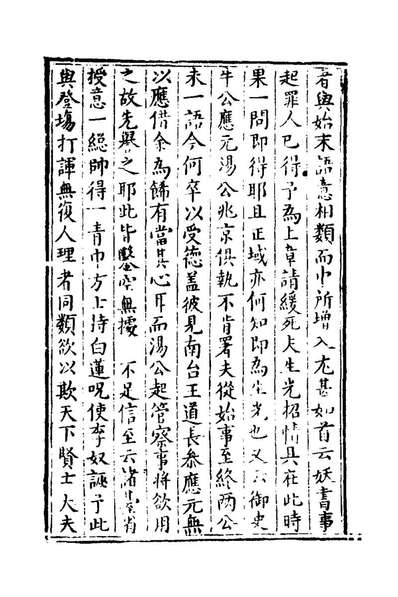 者與始末語意相類而中所增入尤甚如首云妖書事
起罪人已得予為上章請緩死夫生光招情具在此時
果一問即得耶且正域亦何知即為生光也又云御史
牛公應元湯公兆京俱執不肯署夫從始事至終兩公
未一語今何卒以受德蓋彼見南台王道長叅應元無
以應借余為餙有當其心耳而湯公起管察事將欲用
之故先舉之耶此皆鑿空無據 不足信至云諸堂省
授意一總帥得一青巾方士持白蓮呪使李奴誣予此
與登塲打諢無復人理者同類欲以欺天下賢士大夫